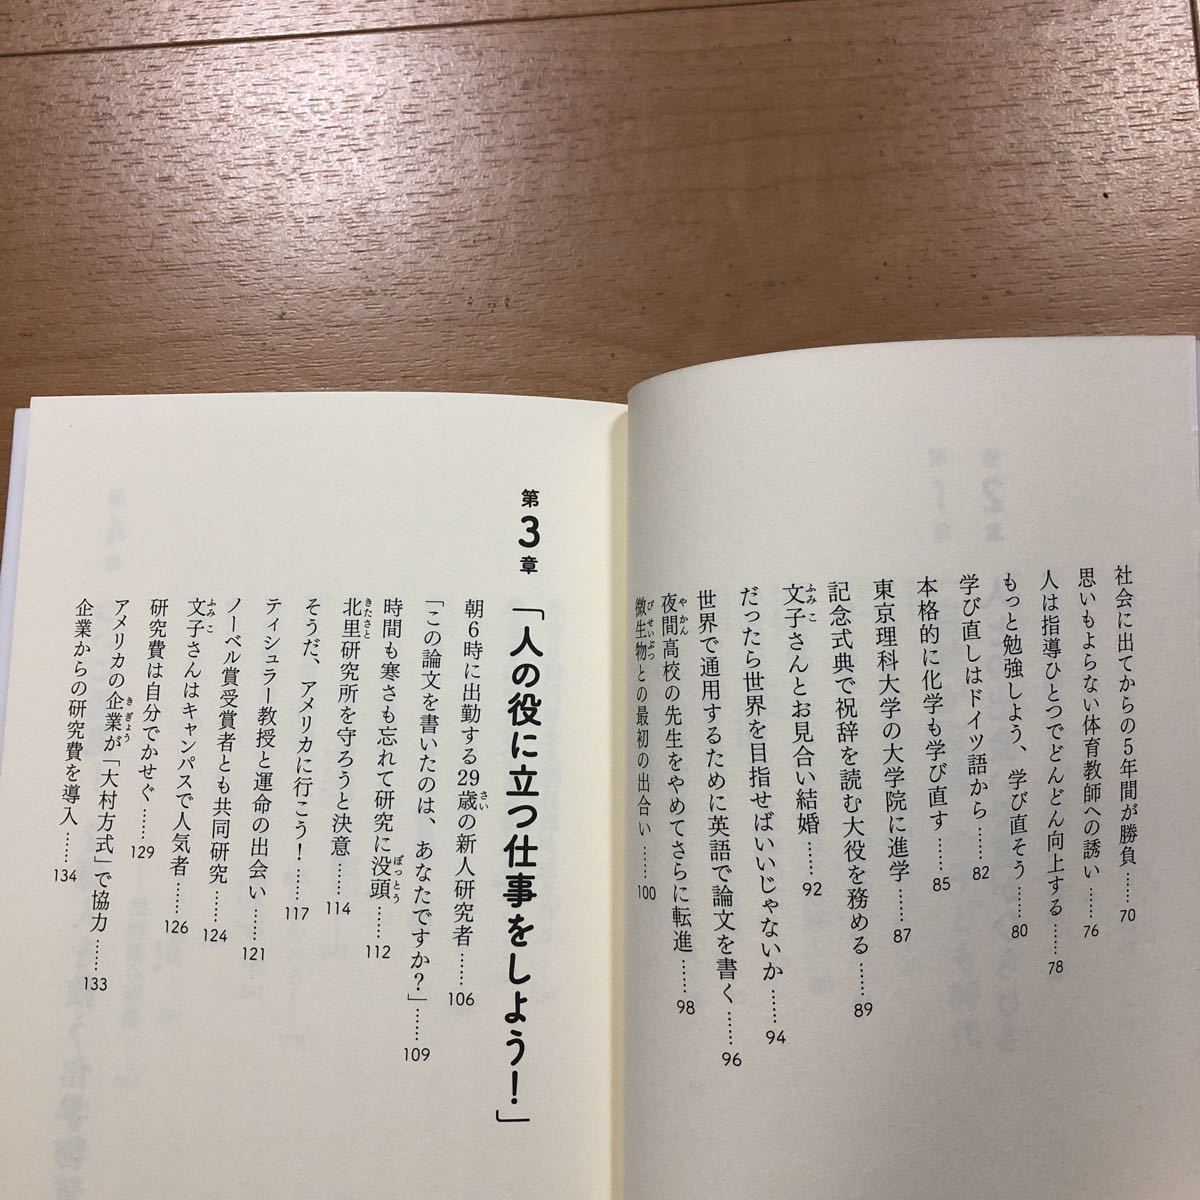 社会に出てからの5年間が勝負……70
思いもよらない体育教師への誘い……76
人は指導ひとつでどんどん向上する……78
もっと勉強しよう、学び直そう……80
学び直しはドイツ語から……82
本格的に化学も学び直す……85
東京理科大学の大学院に進学……87
記念式典で祝辞を読む大役を務める……89
文子さんとお見合い結婚……92
だったら世界を目指せばいいじゃないか……94
世界で通用するために英語で論文を書く……96
夜間高校の先生をやめてさらに転進……98
微生物との最初の出合い……100
第3章 「人の役に立つ仕事をしよう!」
朝6時に出勤する29歳の新人研究者……106
「この論文を書いたのは、あなたですか?」……109
時間も寒さも忘れて研究に没頭……112
北里研究所を守ろうと決意……114
そうだ、アメリカに行こう!……117
ティシュラー教授と運命の出会い……121
ノーベル賞受賞者とも共同研究……124
文子さんはキャンパスで人気者……126
研究費は自分でかせぐ……129
アメリカの企業が「大村方式」で協力……133
企業からの研究費を導入……134